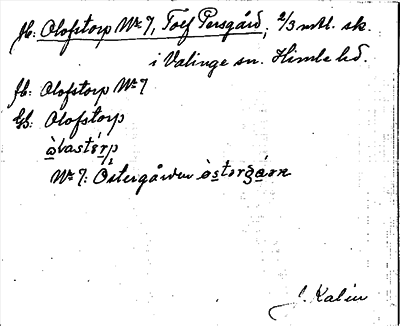 fb: Olofstorp Nr 7, Toef Persgård, 2/3 mtl. sk.
i Valinge sn. Himle hd.
fb: Olofstorp Nr 7
Gb: Olofstorp
òlvastórp
Nr 7: Östergården òstərgá̱rn
J. Kalén